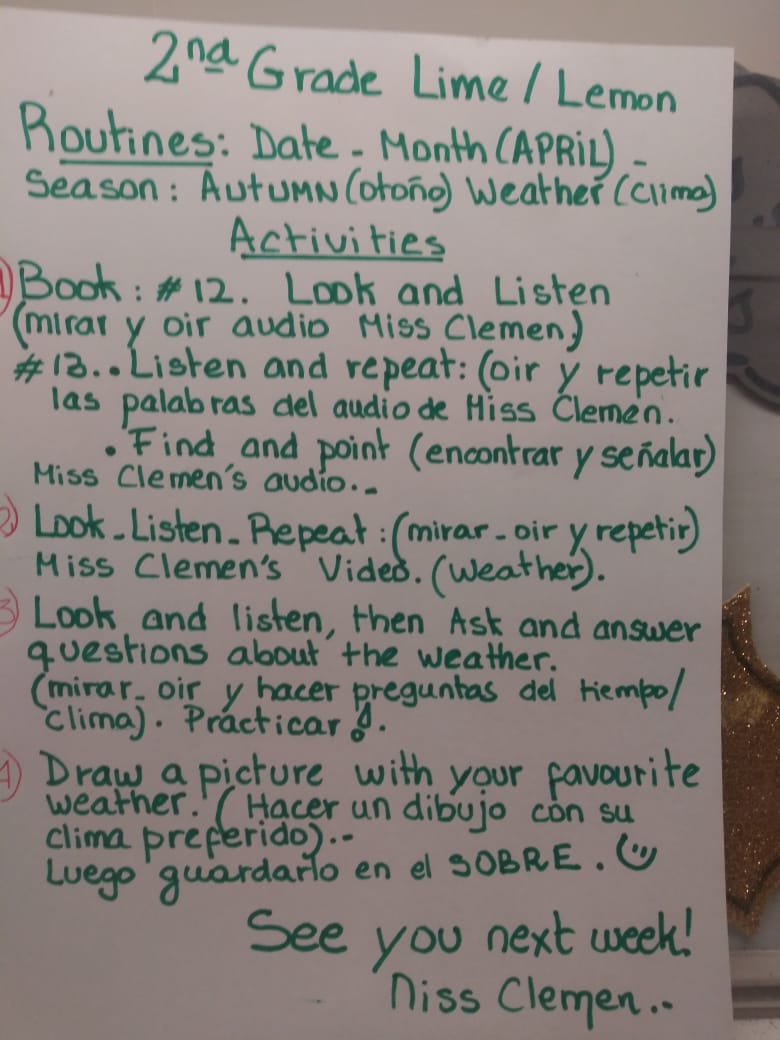 2nd Grade Lime / Lemon
Routines: Date - Month (APRIL) -
Season: AUTUMN (otoño) Weather (clima)
Activities
1) Book: #12. Look and Listen
(mirar y oir audio Miss Clemen)
#13.. Listen and repeat: (oir y repetir
las palabras del audio de Miss Clemen.
. Find and point (encontrar y señalar)
Miss Clemen's audio.-
2) Look-Listen-Repeat: (mirar-oir y repetir)
Miss Clemen's Video. (weather).
3) Look and listen, then Ask and answer
questions about the weather.
(mirar-oir y hacer preguntas del tiempo/
clima). Practicar!.
4) Draw a picture with your favourite
weather. (Hacer un dibujo con su
clima preferido).-
Luego guardarlo en el SOBRE.
See you next week!
Miss Clemen..